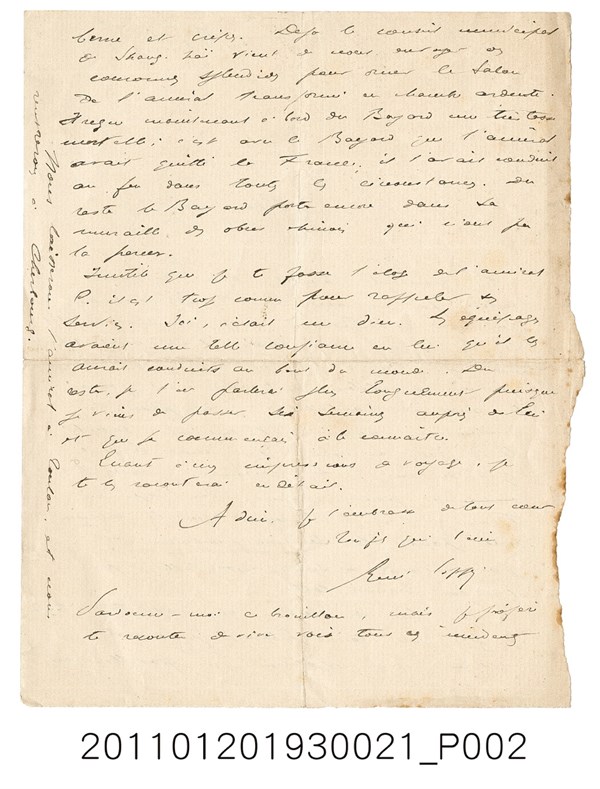 berne et crêpe. Déjà le conseil municipal
de Shang-haï vient de nous envoyer des
couronnes splendides pour orner le salon
de l'amiral transformé en chapelle ardente.
Il règne maintenant à bord du Bayard une tristesse
mortelle; c'est avec le Bayard que l'amiral
avait quitté la France; il l'avait conduit
au feu dans toutes les circonstances. Du
reste le Bayard porte encore dans sa
muraille des obus chinois qui n'ont pu
la percer.
Inutile que je te fasse l'éloge de l'amiral
C. il est trop connu pour rappeler ses
services. Ici, c'était un dieu. Les équipages
avaient une telle confiance en lui qu'il les
aurait conduits au bout du monde. Du
reste, je t'en parlerai plus longuement puisque
je viens de passer six semaines auprès de lui
et que je commençais à le connaître.
Quant à mes impressions de voyage, je
te les raconterai en détail.
Adieu. Je t'embrasse de tout cœur
Ton fils qui t'aime
René
Pardonne-moi ce brouillon, mais je préfère
te raconter de vive voix tous ces incidents
Nous laisserons l'amiral à Toulon, et nous
rentrerons à Cherbourg.
201101201930021_P002